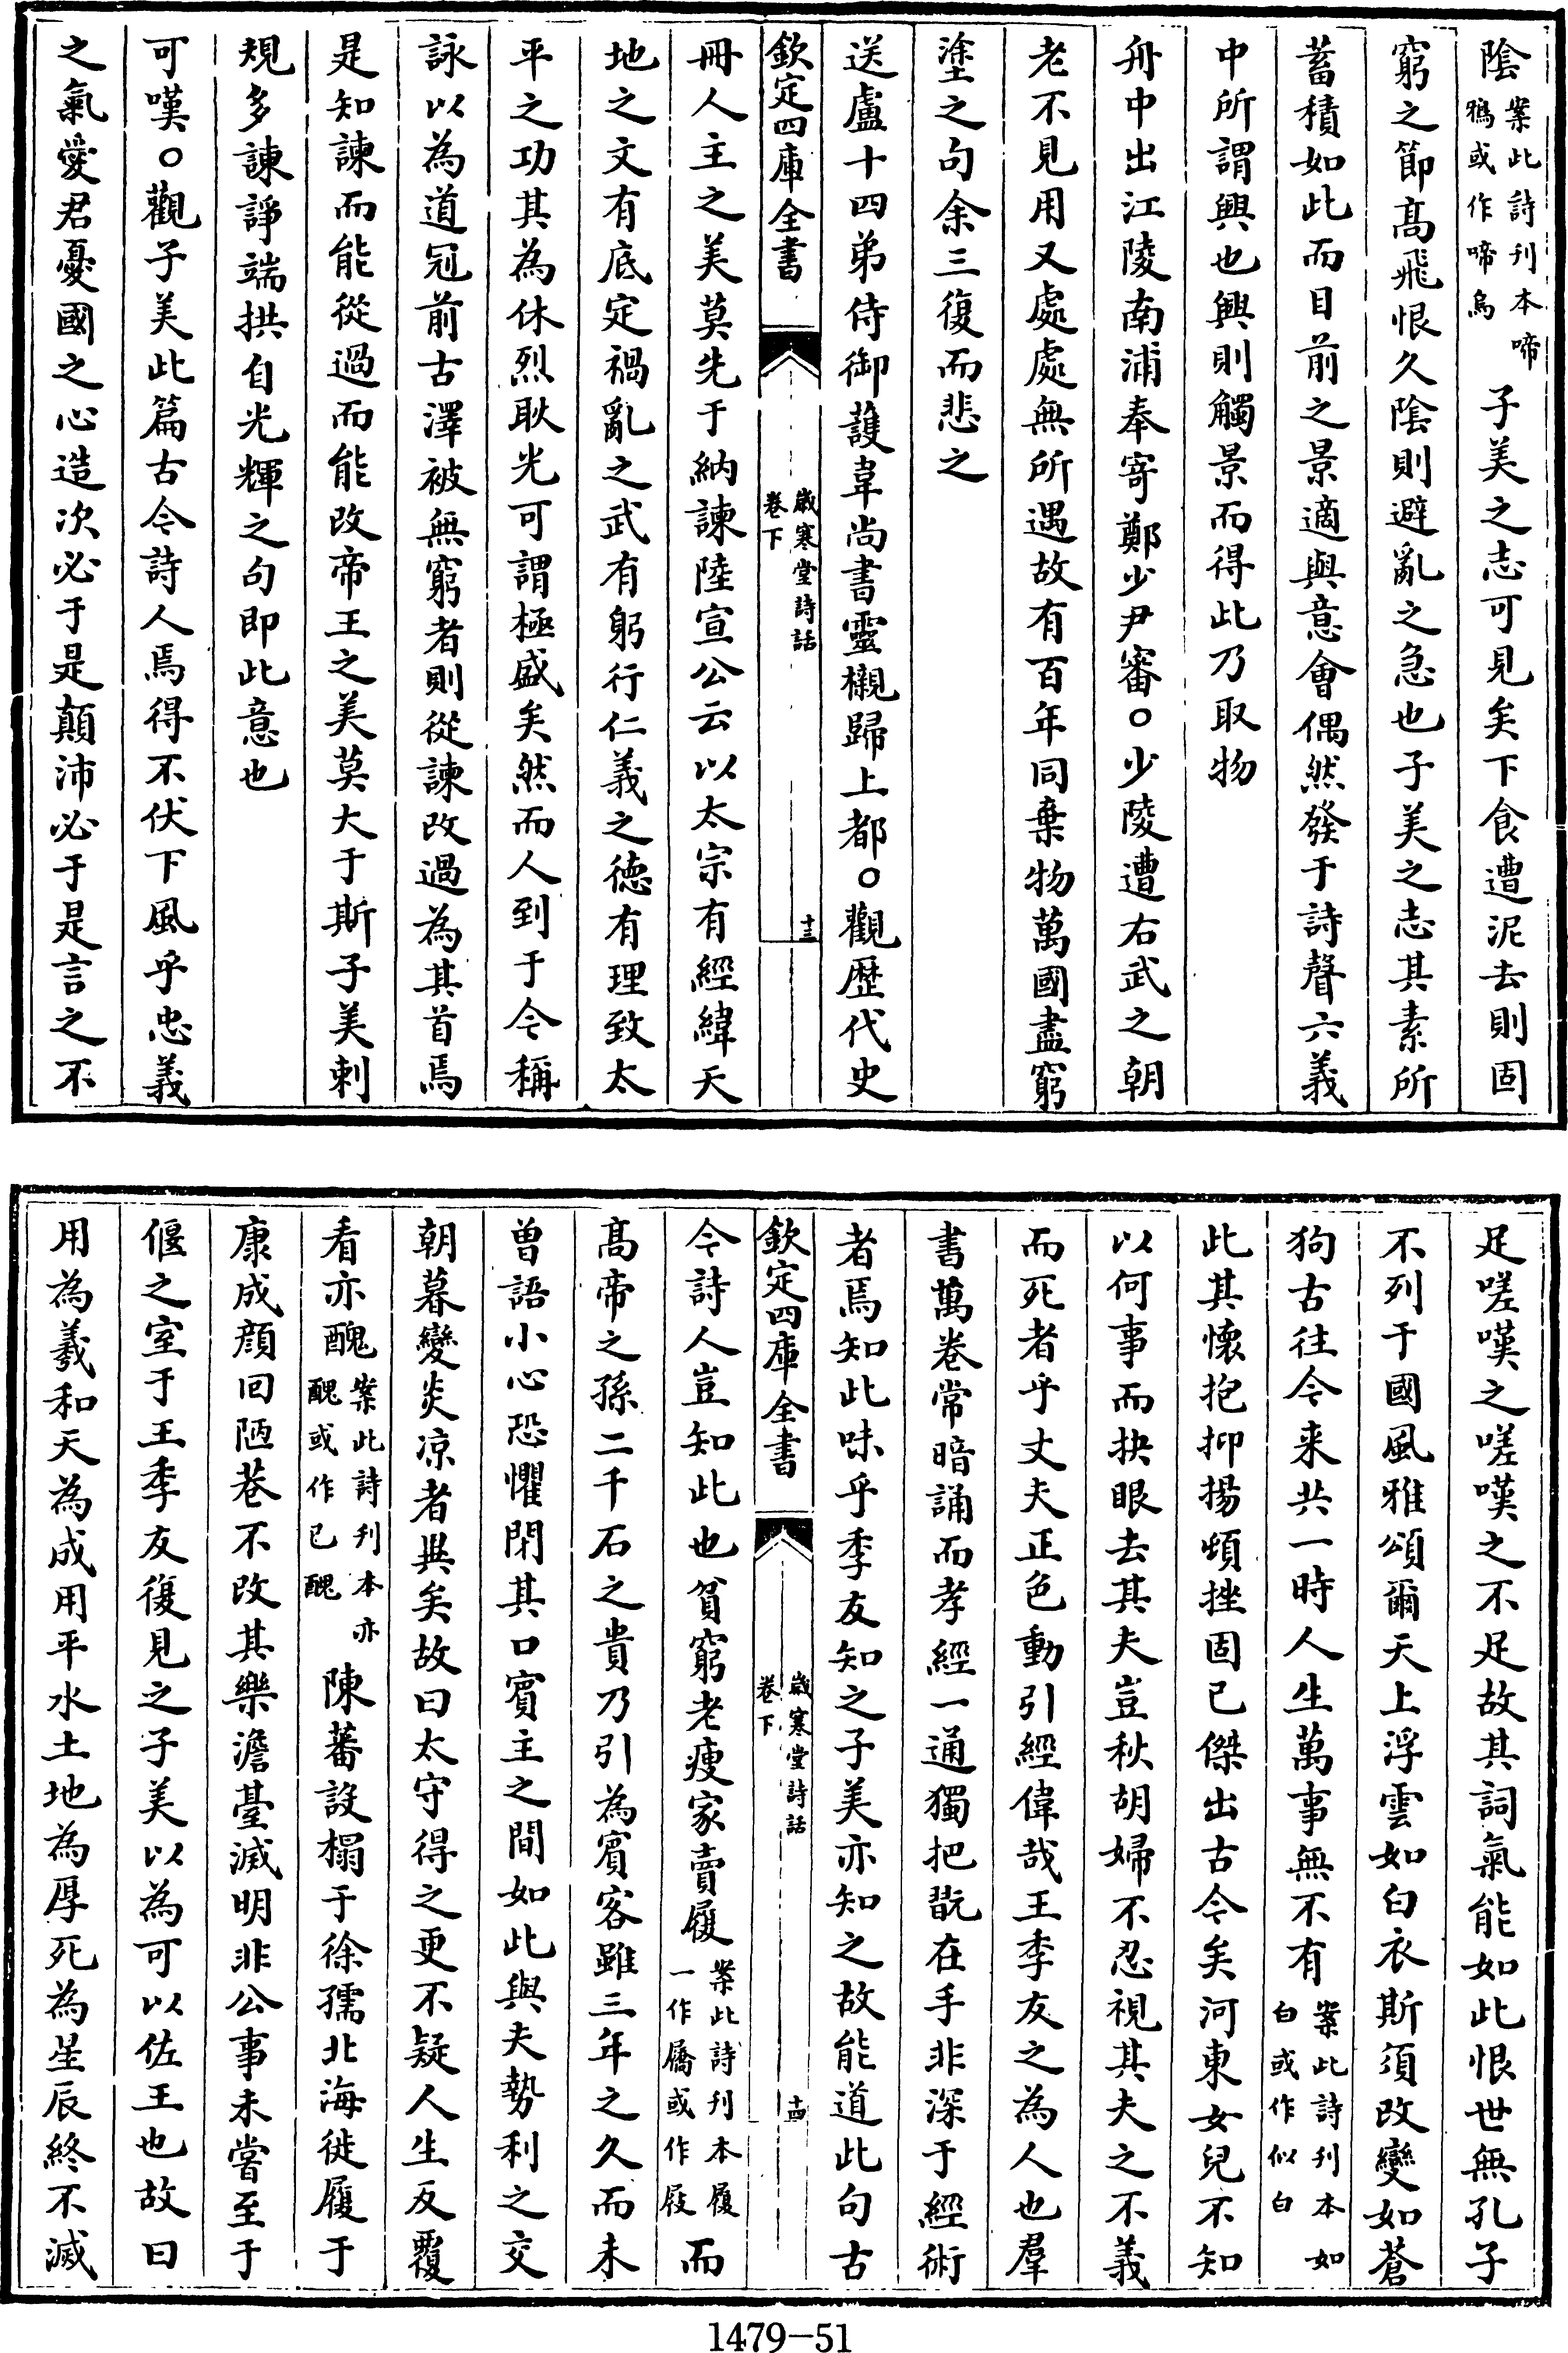 陰案此詩刊本啼鴉或作啼烏子美之志可見矣下食遭泥去則固
窮之節髙飛恨久陰則避亂之急也子美之志其素所
蓄積如此而目前之景適與意會偶然發于詩聲六義
中所謂興也興則觸景而得此乃取物
舟中出江陵南浦奉寄鄭少尹審○少陵遭右武之朝
老不見用又處處無所遇故有百年同棄物萬國盡窮
塗之句余三復而悲之
送盧十四弟侍御護韋尚書靈櫬歸上都○觀歴代史
欽定四庫全書
歲寒堂詩話
卷下
十三
冊人主之美莫先于納諫陸宣公云以太宗有經緯天
地之文有底定禍亂之武有躬行仁義之德有理致太
平之功其為休烈耿光可謂極盛矣然而人到于今稱
詠以為道冠前古澤被無窮者則從諫改過為其首焉
是知諫而能從過而能改帝王之美莫大于斯子美刺
規多諫諍端拱自光輝之句即此意也
可嘆○觀子美此篇古今詩人焉得不伏下風乎忠義
之氣愛君憂國之心造次必于是顛沛必于是言之不
足嗟嘆之嗟嘆之不足故其詞氣能如此恨世無孔子
不列于國風雅頌爾天上浮雲如白衣斯須改變如蒼
狗古往今来共一時人生萬事無不有案此詩刊本如白或作似白
此其懷抱抑揚頓挫固已傑出古今矣河東女兒不知
以何事而抉眼去其夫豈秋胡婦不忍視其夫之不義
而死者乎丈夫正色動引經偉哉王季友之為人也羣
書萬卷常暗誦而孝經一通獨把翫在手非深于經術
者焉知此味乎季友知之子美亦知之故能道此句古
欽定四庫全書
歲寒堂詩話
卷下
十四
今詩人豈知此也貧窮老瘦家賣屨案此詩刊本屨一作屩或作屐而
髙帝之孫二千石之貴乃引為賓客雖三年之久而未
曽語小心恐懼閉其口賓主之間如此與夫勢利之交
朝暮變炎凉者異矣故曰太守得之更不疑人生反覆
看亦醜案此詩刊本亦醜或作已醜陳蕃設榻于徐孺北海徙履于
康成顔囘陋巷不改其樂澹臺滅明非公事未嘗至于
偃之室于王季友復見之子美以為可以佐王也故曰
用為羲和天為成用平水土地為厚死為星辰終不滅
1479-51